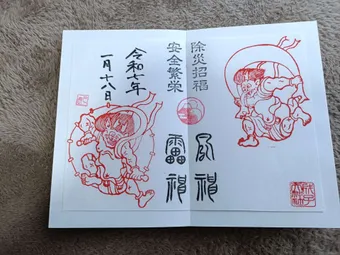 除災招福
風神
安全繁栄
雷神
令和七年
一月十八日